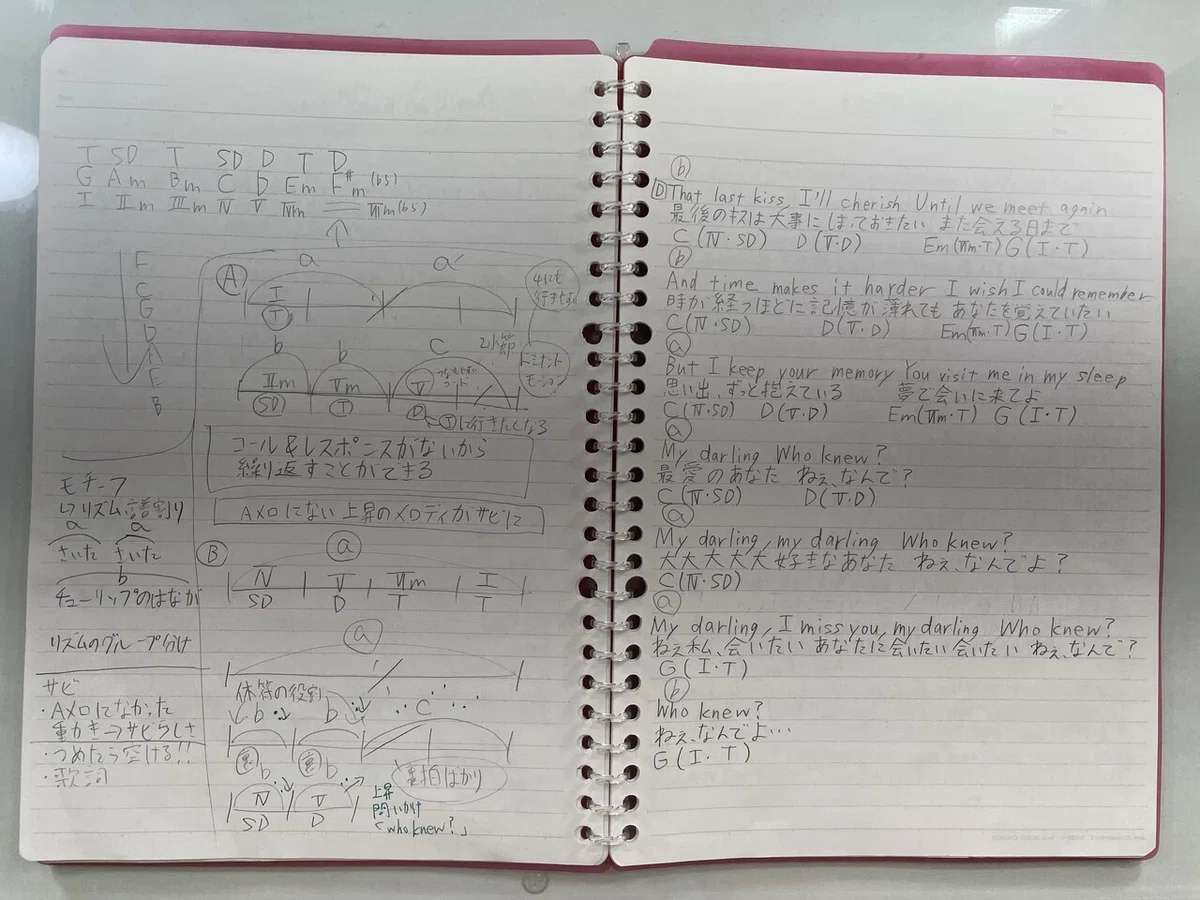 T SD T SD D T D
G Am Bm C D Em F#m(b5)
I IIm IIIm IV V VIm VIIm(b5)
F
C
G
D
A
E
B
A
a a'
I
T
4にも
行きたがる
b b C 2小節
IIm VIm V
SD T D
ドミナント
モーション
Iに行きたくなる
コール&レスポンスがないから
繰り返すことができる
Aメロにない上昇のメロディがサビに
モチーフ
リズム、譜割り
a a
さいた さいた
b
チューリップのはなが
リズムのグループ分け
サビ
・Aメロになかった
動き→サビらしさ
・つめたら空ける!!
・歌詞
B
a
IV V VIm I
SD D T T
a
休符の役割
b b C
裏 裏
裏拍ばかり
b b
IV V
SD D
上昇
問いかけ
「who knew?」
b
D That last kiss, I'll cherish Until we meet again
最後のキスは大事にしまっておきたい また会える日まで
C (IV・SD) D (V・D) Em (VIm・T) G (I・T)
b
And time makes it harder I wish I could remember
時が経つほどに記憶が薄れても あなたを覚えていたい
C (IV・SD) D (V・D) Em (VIm・T) G (I・T)
a
But I keep your memory You visit me in my sleep
思い出、ずっと抱えている 夢で会いに来てよ
C (IV・SD) D (V・D) Em (VIm・T) G (I・T)
a
My darling Who knew?
最愛のあなた ねぇ、なんで?
C (IV・SD) D (V・D)
a
My darling, my darling Who knew?
大大大大大好きなあなた ねぇ、なんでよ?
C (IV・SD)
a
My darling, I miss you, my darling Who knew?
ねぇ私、会いたい あなたに会いたい 会いたい ねぇ、なんで?
G (I・T)
b
Who knew?
ねぇ、なんでよ…
G (I・T)